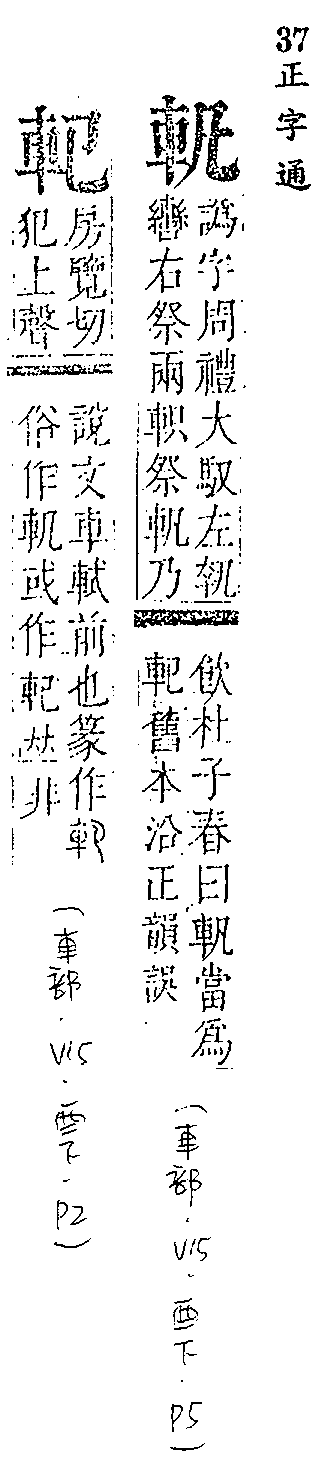 37 正字通
軓
譌字周禮大馭左執
轡右祭兩軹祭軓乃
飮杜子春曰軓當爲
舊本沿正韻誤
(車部.V15.酉下.P5)
房覽切
犯上聲
說文車軾前也篆作
俗作軓或作並非
(車部.V15.酉下.P2)